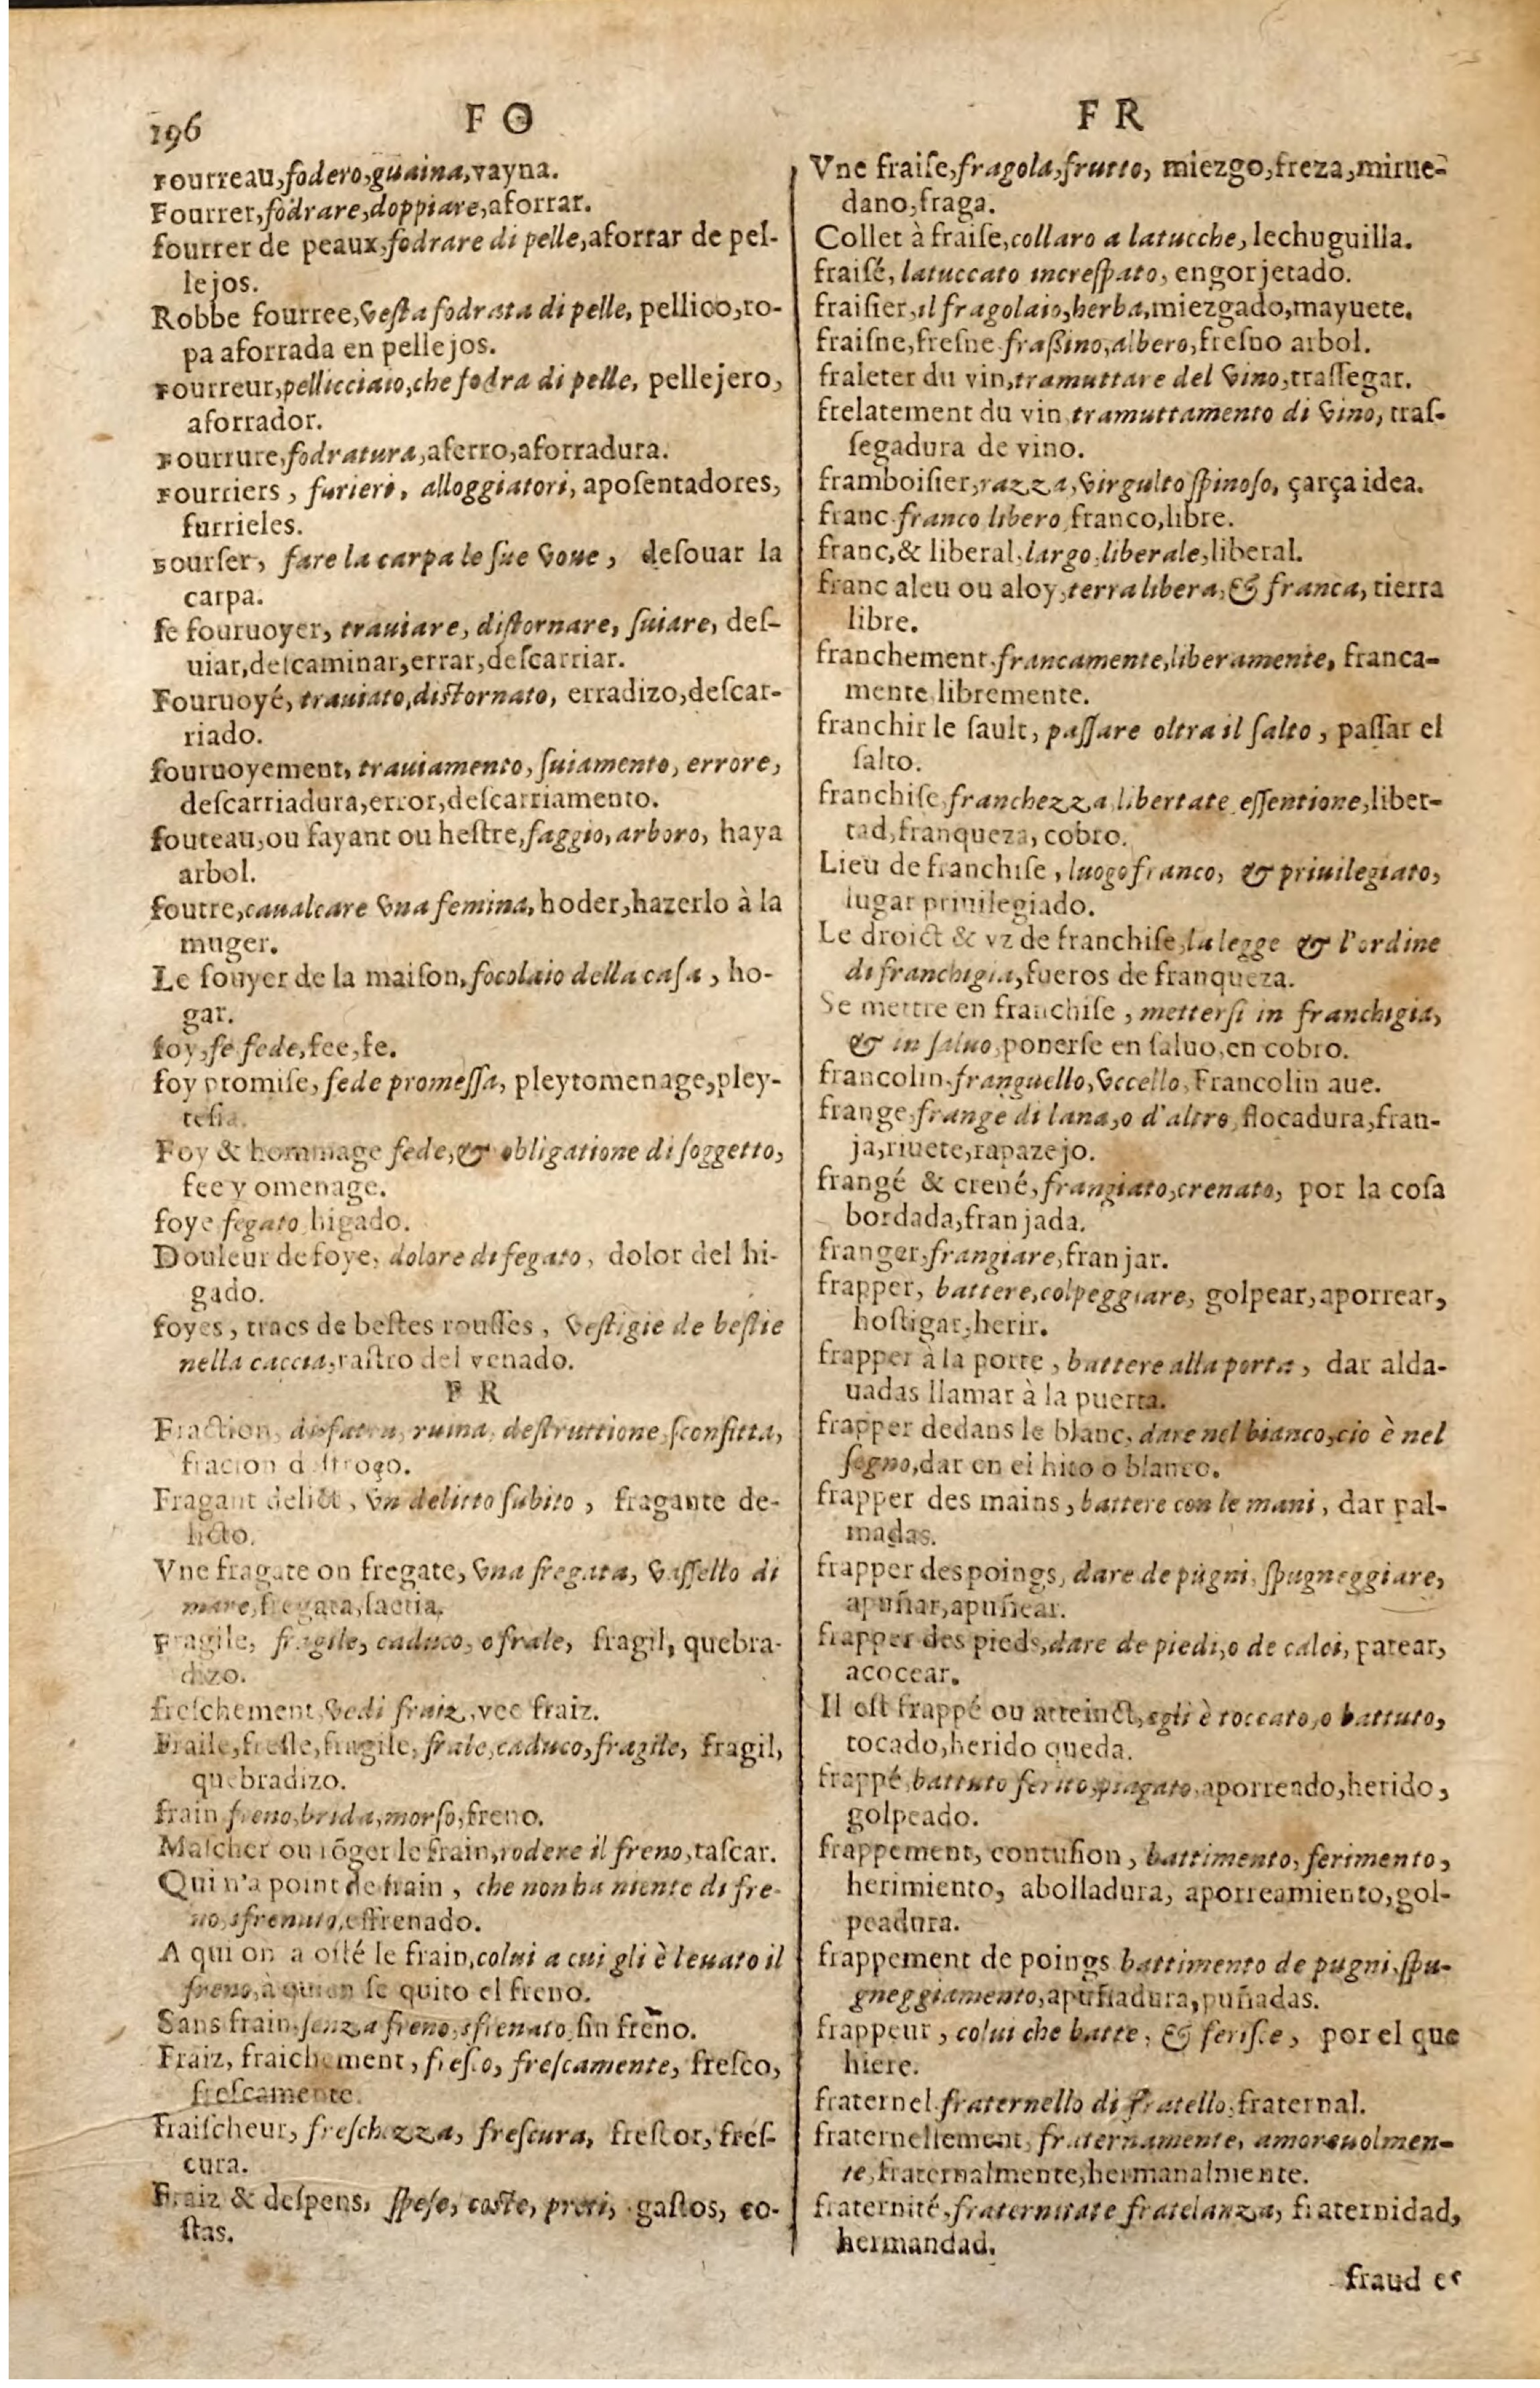 196
F O
Fourreau, fodero, guaina, vayna.
Fourrer, fodrare, doppiare, aforrar.
fourrer de peaux, fodrare di pelle, aforrar de pel-
lejos.
Robbe fourree, vesta fodrata di pelle, pellico, ro-
pa aforrada en pellejos.
Fourreur, pellicciaio, che fodra di pelle, pellejero,
aforrador.
Fourrure, fodratura, aferro, aforradura.
Fourriers, furieri, alloggiatori, aposentadores,
furrieles.
Fourser, fare la carpa le sue voue, desouar la
carpa.
se fouruoyer, trauiare, distornare, suiare, des-
uiar, descaminar, errar, descarriar.
Fouruoyé, trauiato, distornato, erradizo, descar-
riado.
fouruoyement, trauiamento, suiamento, errore,
descarriadura, error, descarriamento.
fouteau, ou fayant ou hestre, faggio, arboro, haya
arbol.
foutre, caualcare vna femina, hoder, hazerlo à la
muger.
Le fouyer de la maison, focolaio della casa, ho-
gar.
foy, fe fede, fee, fe.
foy promise, fede promessa, pleytomenage, pley-
tesia.
Foy & hommage fede, & obligatione di soggetto,
fee y omenage.
foye fegato higado.
Douleur de foye, dolore di fegato, dolor del hi-
gado.
foyes, tracs de bestes rousses, vestigie de bestie
nella caccia, rastro del venado.
F R
Fraction, disfatta, ruina, destruttione, sconfitta,
fracion destroço.
Fragant delict, vn delitto subito, fragante de-
licto.
Vne fragate on fregate, vna fregata, vassello di
mare, fregata, saetia.
Fragile, fragile, caduco, o frale, fragil, quebra-
dizo.
freschement, vedi fraiz, vee fraiz.
Fraile, fresle, fragile, frale, caduco, fragile, fragil,
quebradizo.
frain freno, brida, morso, freno.
Mascher ou rõger le frain, rodere il freno, tascar.
Qui n'a point de frain, che non ha niente di fre-
no, sfrenato, esfrenado.
A qui on a osté le frain, colui a cui gli è leuato il
freno, à quien se quito el freno.
Sans frain, senza freno, sfrenato, sin freno.
Fraiz, fraichement, fresco, frescamente, fresco,
frescamente.
Fraischeur, freschezza, frescura, frescor, fres-
cura.
Fraiz & despens, spese, coste, preti, gastos, co-
stas.
F R
Vne fraise, fragola, frutto, miezgo, freza, mirue-
dano, fraga.
Collet à fraise, collaro a latucche, lechuguilla.
fraisé, latuccato increspato, engorjetado.
fraisier, il fragolaio, herba, miezgado, mayuete.
fraisne, fresne frassino, albero, fresno arbol.
fraleter du vin, tramuttare del vino, trassegar.
frelatement du vin tramuttamento di vino, tras-
segadura de vino.
framboisier, razza, virgulto spinoso, çarça idea.
franc franco libero franco, libre.
franc, & liberal, largo, liberale, liberal.
franc aleu ou aloy, terra libera, & franca, tierra
libre.
franchement, francamente, liberamente, franca-
mente libremente.
franchir le sault, passare oltra il salto, passar el
salto.
franchise, franchezza libertate essentione, liber-
tad, franqueza, cobro.
Lieu de franchise, luogo franco, & priuilegiato,
lugar priuilegiado.
Le droict & vz de franchise, la legge & l'ordine
di franchigia, fueros de franqueza.
Se mettre en franchise, mettersi in franchigia,
& in saluo, ponerse en saluo, en cobro.
francolin, franguello, vccello, Francolin aue.
frange, frange di lana, o d'altro, flocadura, fran-
ja, riuete, rapazejo.
frangé & crené, frangiato, crenato, por la cosa
bordada, franjada.
franger, frangiare, franjar.
frapper, battere, colpeggiare, golpear, aporrear,
hostigar, herir.
frapper à la porte, battere alla porta, dar alda-
uadas llamar à la puerta.
frapper dedans le blanc, dare nel bianco, cio è nel
segno, dar en el hito o blanco.
frapper des mains, battere con le mani, dar pal-
madas.
frapper des poings, dare de pugni, spugneggiare,
apuñar, apuñear.
frapper des pieds, dare de piedi, o de calci, patear,
acocear.
Il est frappé ou atteinct, egli è toccato, o battuto,
tocado, herido queda.
frappé, battuto ferito, piagato, aporreado, herido,
golpeado.
frappement, contusion, battimento, ferimento,
herimiento, abolladura, aporreamiento, gol-
peadura.
frappement de poings battimento de pugni, spu-
gneggiamento, apuñadura, puñadas.
frappeur, colui che batte, & ferisce, por el que
hiere.
fraternel, fraternello di fratello, fraternal.
fraternellement, fraternamente, amoreuolmen-
te, fraternalmente, hermanalmente.
fraternité, fraternitate fratelanza, fraternidad,
hermandad.
fraud es